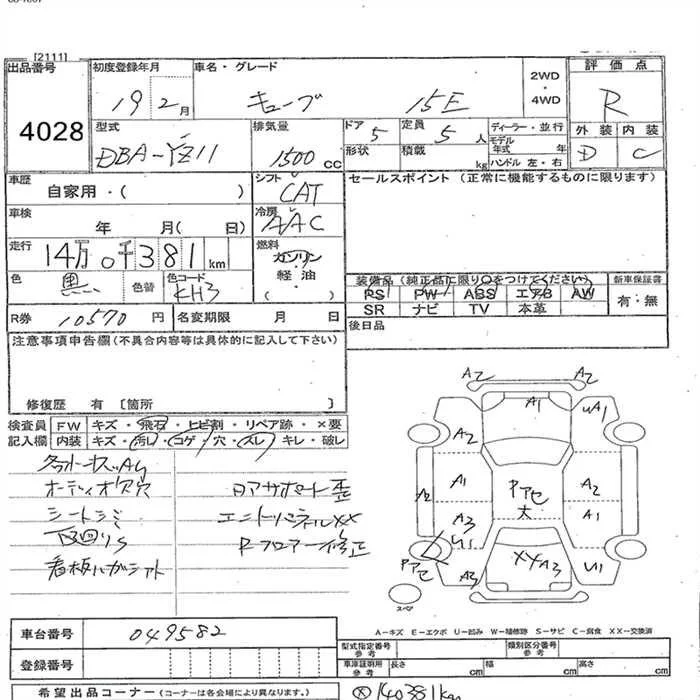 [2111]
出品番号 初度登録年月 車名・グレード 2WD 4WD 評価点
4028 19 2月 キューブ 15E R
型式 排気量 ドア 定員 ディーラー・並行 外装 内装
DBA-YZ11 1500 cc 5 5 人 モデル年式 年 D C
形状 積載 kg ハンドル 左・右
車歴 自家用・( ) シフト CAT セールスポイント (正常に機能するものに限ります)
車検 年 月( 日) 冷房 AAC
走行 14万0千381km 燃料 ガソリン・軽油・( )
色 黒 色替 色コード KH3
装備品 (純正品に限り○をつけてください) 新車保証書
PS PW ABS エアB AW 有・無
SR ナビ TV 本革
R券 10570 円 名変期限 月 日 後日品
注意事項申告欄(不具合内容等は具体的に記入して下さい)
修復歴 有 [箇所
検査員記入欄 FW キズ・飛石・ヒビ割・リペア跡・×要
内装 キズ・汚レ・コゲ・穴・スレ・キレ・破レ
オーディオ欠穴
シートシミ
下回りS
看板ハガシアト
エンドパネルXX
Rフロアー修正
A2 A2
A1 A1
A2
A1 A2
A2 Pアセ 太
A3 A1
U1
Pアセ XX A3 U1
A3
スペア
A-キズ E-エクボ U-凹み W-補修跡 S-サビ C-腐食 XX-交換済
車台番号 049582
登録番号
型式指定番号 参考 類別区分番号 参考
車庫証明用 参考 長さ cm 幅 cm 高さ cm
希望出品コーナー (コーナーは各会場により異なります)
140381km